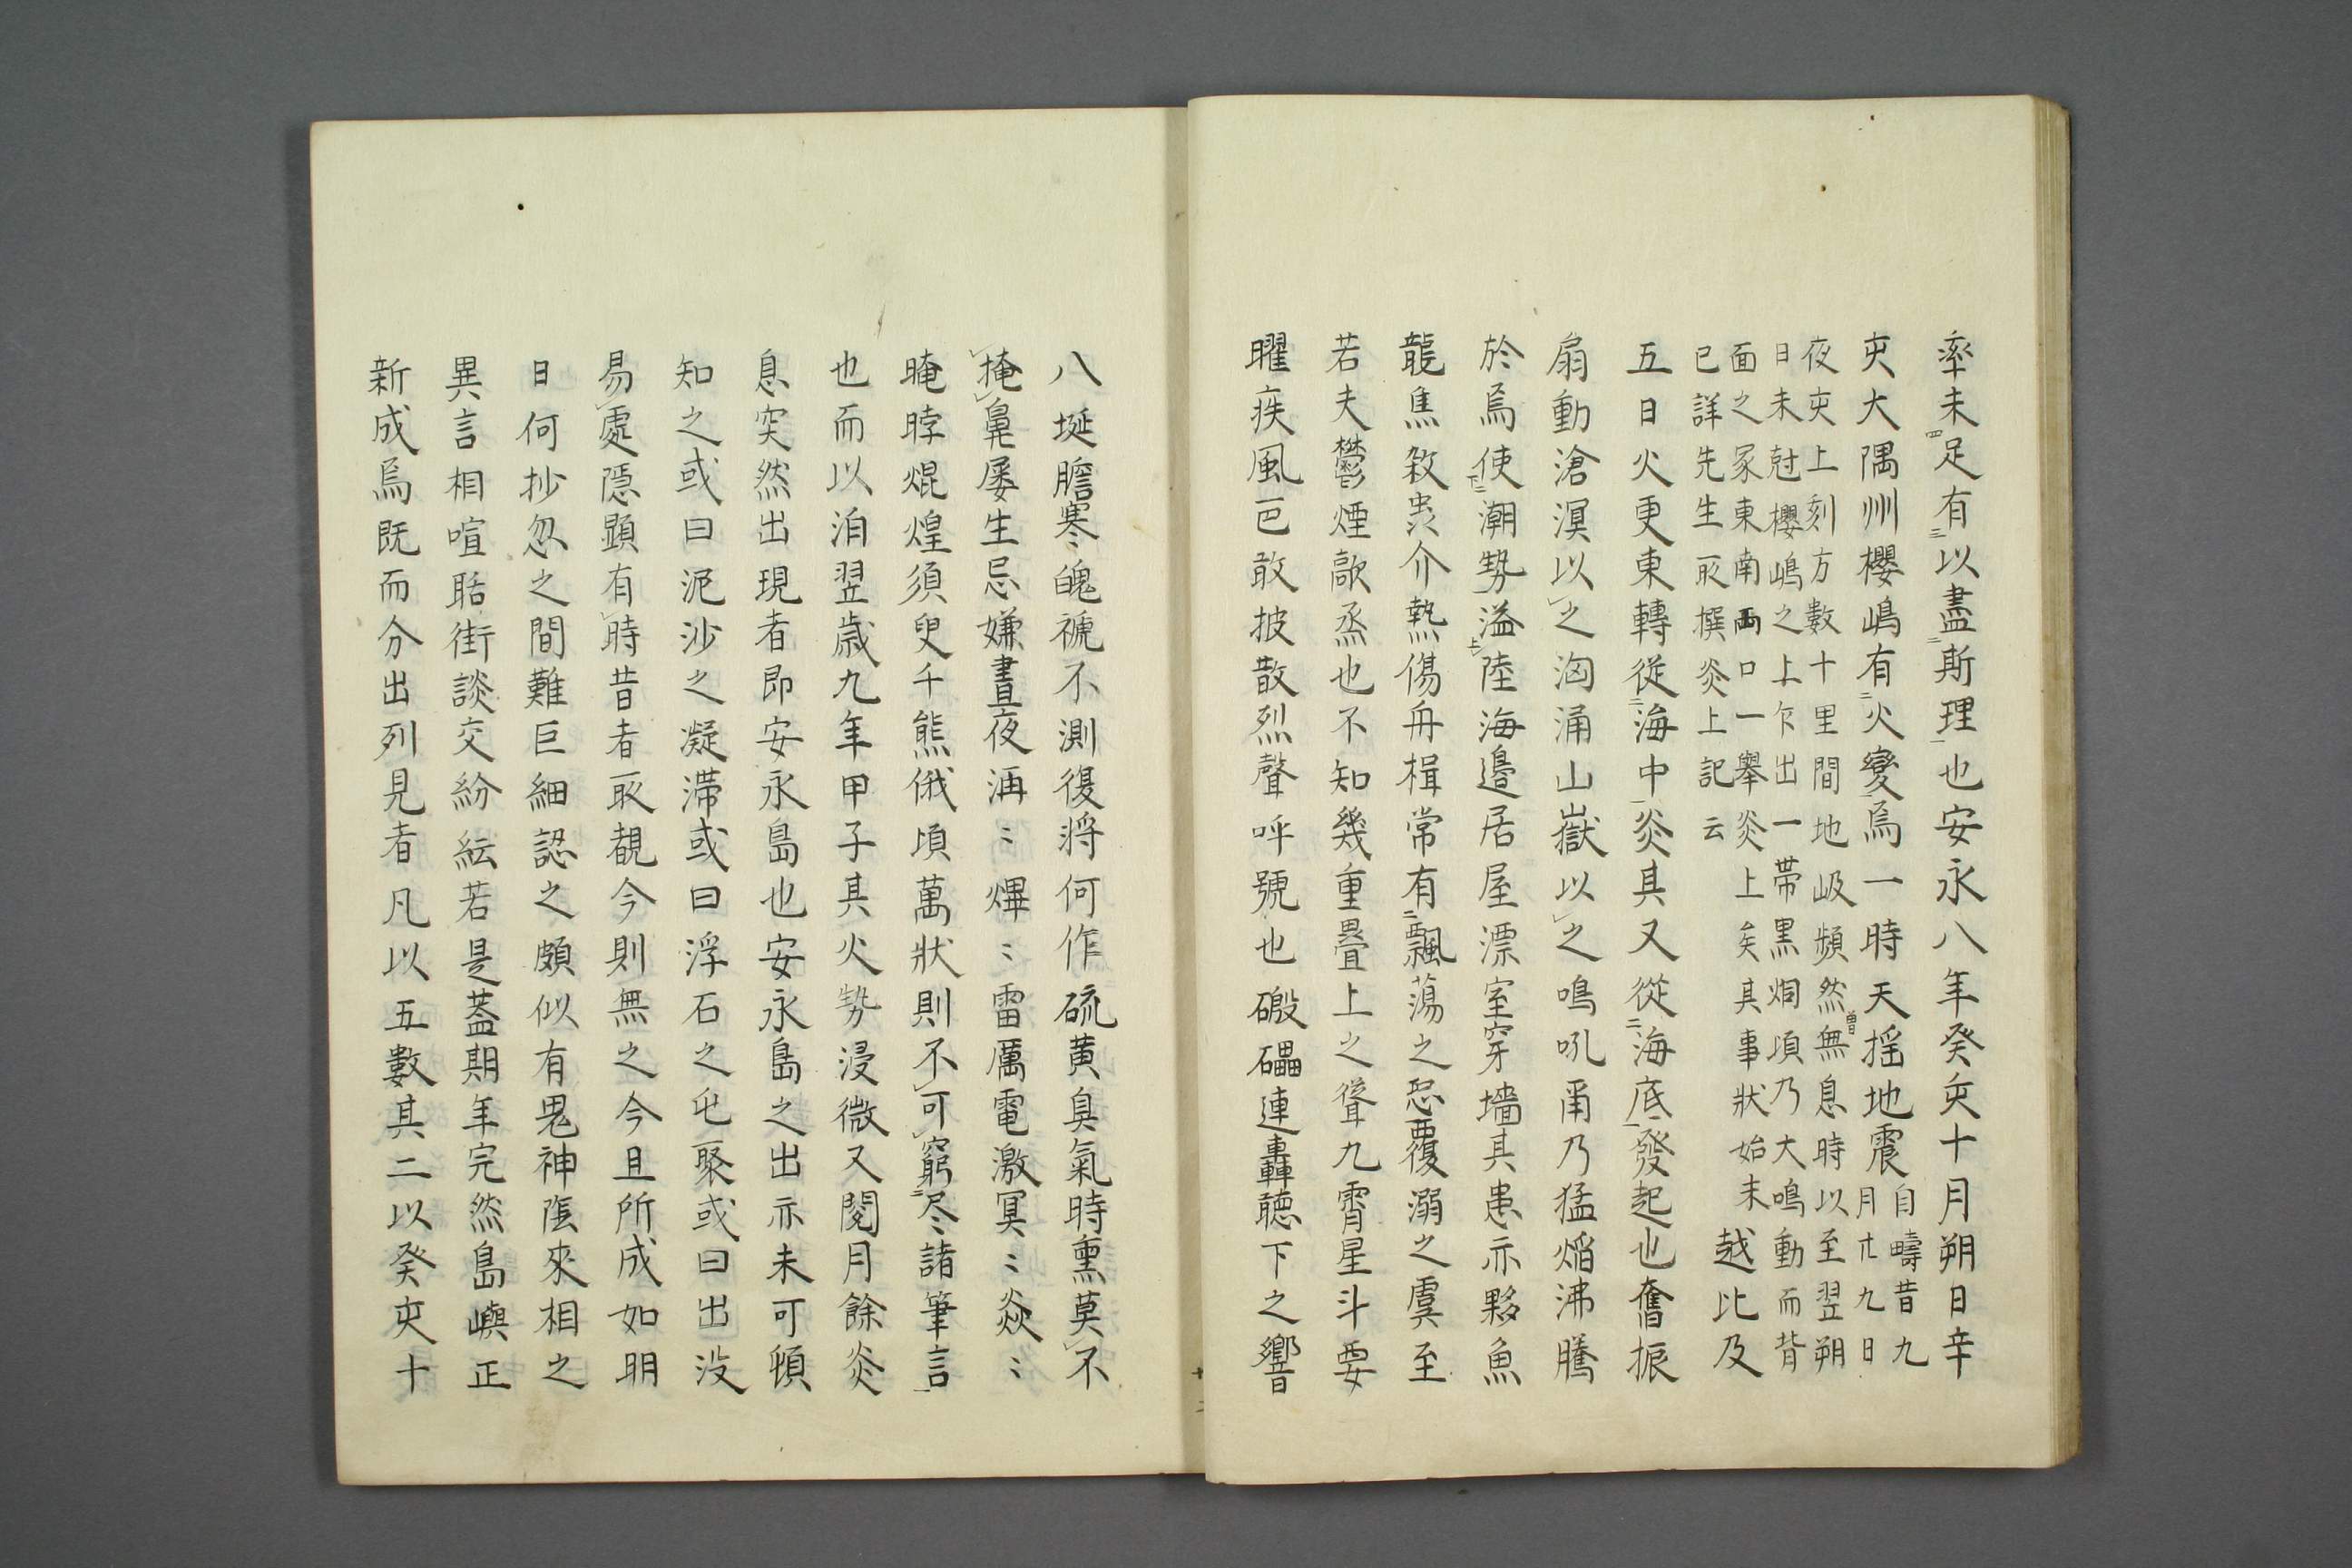 率未足有以盡斯理也安永八年癸亥十月朔日辛
亥大隅州櫻嶋有火變焉一時天揺地震
自疇昔九
月廿九日
夜亥上刻方數十里間地岋頻然無息時以至翌朔
日未尅櫻嶋之上乍出一帯黒烟頃乃大鳴動而背
面之冢東南両口一舉炎上矣其事状始末
已詳先生㪽撰炎上記云
越比及
五日火更東轉従海中炎其又從海底發起也奮振
扇動滄溟以之洶涌山嶽以之鳴吼甬乃猛焔沸騰
於焉使潮勢溢陸海邉居屋漂室穿墻其患亦夥魚
龍焦敘虫介熱傷舟楫常有飄蕩之恐覆溺之虞至
若夫欝煙歊烝也不知幾重疊上之聳九霄星斗要
曜疾風㠯敢披散烈聲呼號也磤礧連轟聴下之響
八埏膽寒魄褫不測復将何作硫黄臭氣時熏莫不
掩鼻屡生忌嫌晝夜洅〻熚〻雷厲電激冥〻焱〻
晻晬焜煌須臾千熊俄頃萬状則不可窮尽諸筆言
也而以洎翌歳九年甲子其火勢浸微又閲月餘炎
息突然出現者即安永島也安永島之出亦未可頓
知之或曰泥沙之凝滞或曰浮石之屯聚或曰出没
易處隠顕有時昔者㪽覩今則無之今且所成如明
日何抄忽之間難巨細認之頗似有鬼神陰來相之
異言相喧聒街談交紛紜若是葢期年完然島嶼正
新成焉既而分出列見者凡以五數其二以癸亥十